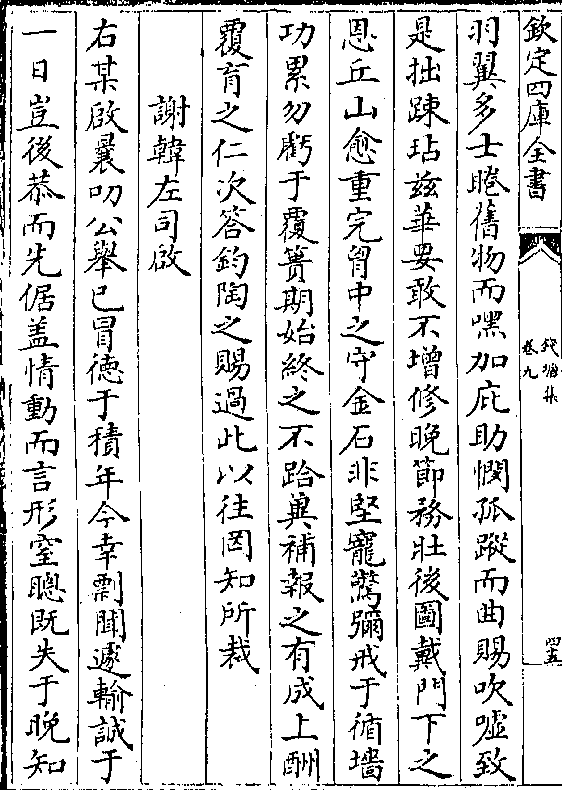 欽定四庫全書
錢塘集
卷九
四五
羽翼多士睠舊物而嘿加庇助憫孤蹤而曲賜吹噓致
是拙踈玷兹華要敢不增修晚節務壯後圖戴門下之
恩丘山愈重完胷中之守金石非堅寵驚彌戒于循墻
功累勿虧于覆簣期始終之不跲兾補報之有成上酬
覆育之仁次答鈞陶之賜過此以往罔知所裁
謝韓左司啟
右某啟曩叨公舉已冒徳于積年今幸剽聞遽輸誠于
一日豈後恭而先倨盖情動而言形窒聰既失于晚知